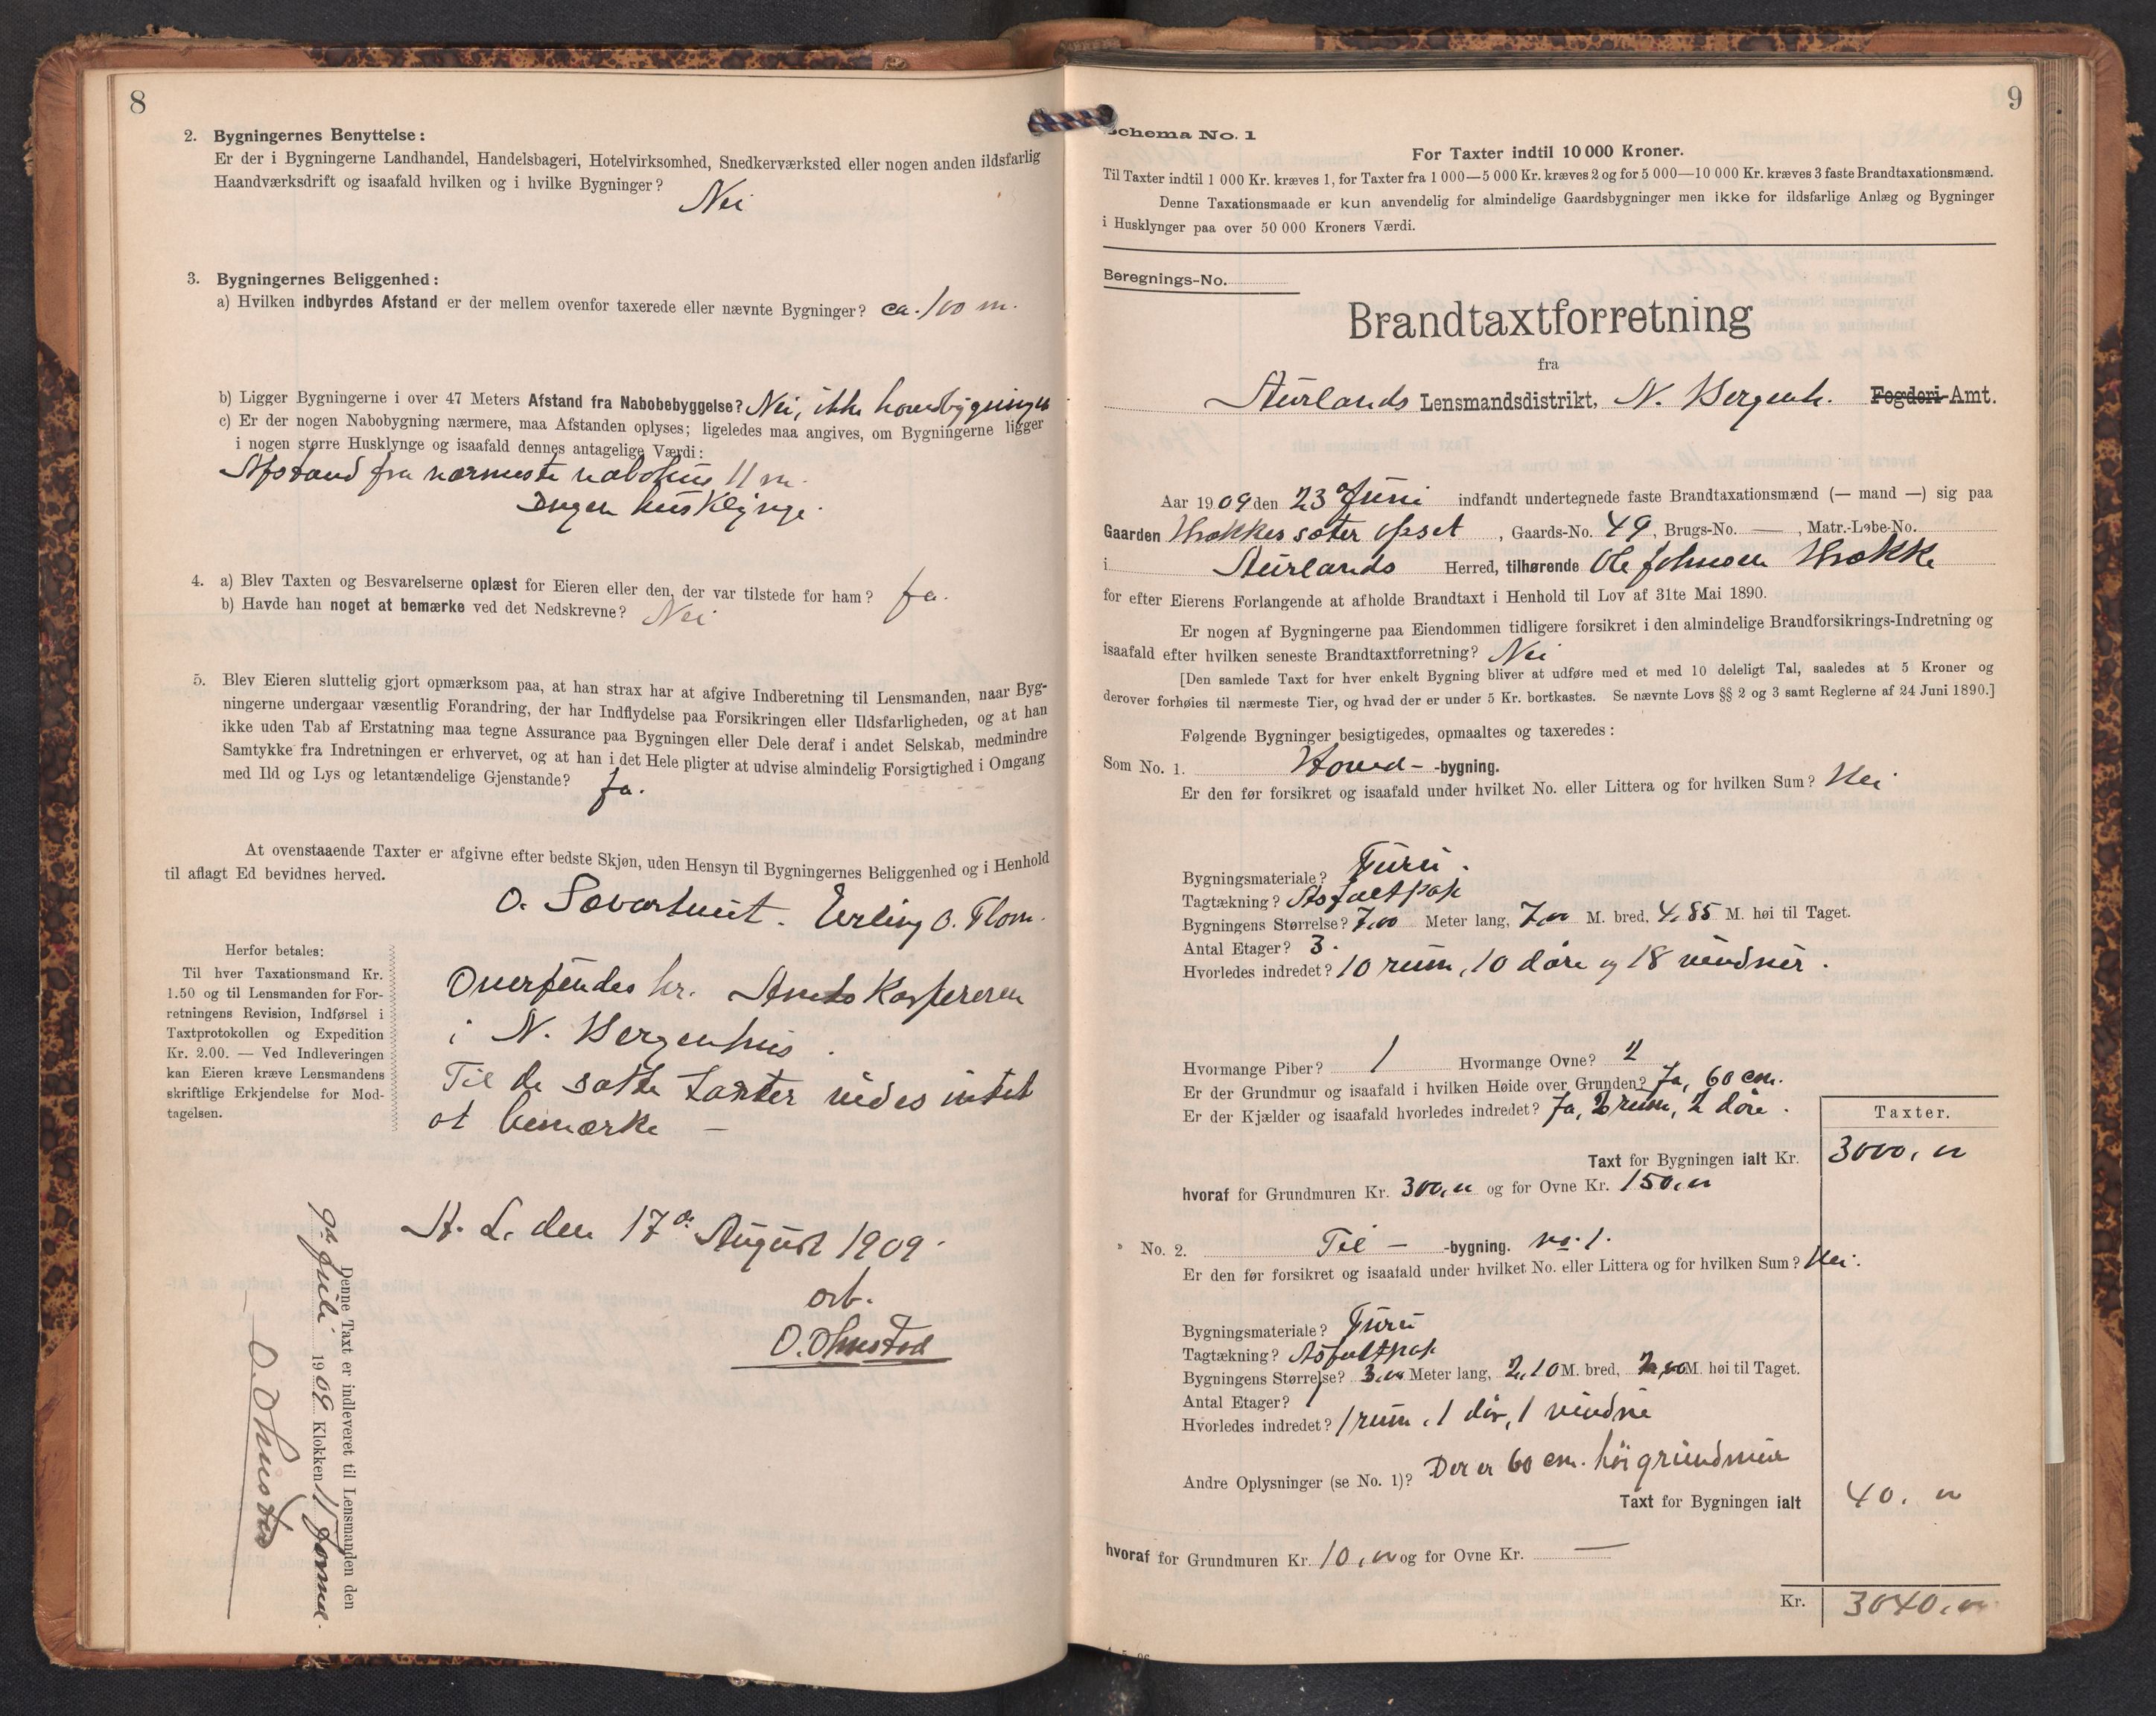 8
2. Bygningernes Benyttelse:
Er der i Bygningerne Landhandel, Handelsbageri, Hotelvirksomhed, Snedkerværksted eller nogen anden ildsfarlig
Haandværksdrift og isaafald hvilken og i hvilke Bygninger? Nei
3. Bygningernes Beliggenhed:
a) Hvilken indbyrdes Afstand er der mellem ovenfor taxerede eller nævnte Bygninger? ca. 100 m.
b) Ligger Bygningerne i over 47 Meters Afstand fra Nabobebyggelse? Nei, ikke hovedbygningen
c) Er der nogen Nabobygning nærmere, maa Afstanden oplyses; ligeledes maa angives, om Bygningerne ligger
i nogen større Husklynge og isaafald dennes antagelige Værdi:
Afstand fra nærmeste nabohus 11 m.
Ingen husklynge.
4. a) Blev Taxten og Besvarelserne oplæst for Eieren eller den, der var tilstede for ham? Ja.
b) Havde han noget at bemærke ved det Nedskrevne? Nei
5. Blev Eieren sluttelig gjort opmærksom paa, at han strax har at afgive Indberetning til Lensmanden, naar Byg-
ningerne undergaar væsentlig Forandring, der har Indflydelse paa Forsikringen eller Ildsfarligheden, og at han
ikke uden Tab af Erstatning maa tegne Assurance paa Bygningen eller Dele deraf i andet Selskab, medmindre
Samtykke fra Indretningen er erhvervet, og at han i det Hele pligter at udvise almindelig Forsigtighed i Omgang
med Ild og Lys og letantændelige Gjenstande? Ja.
At ovenstaaende Taxter er afgivne efter bedste Skjøn, uden Hensyn til Bygningernes Beliggenhed og i Henhold
til aflagt Ed bevidnes herved.
O. Erling O. Flom.
Herfor betales:
Til hver Taxationsmand Kr.
1.50 og til Lensmanden for For-
retningens Revision, Indførsel i
Taxtprotokollen og Expedition
Kr. 2.00. — Ved Indleveringen
kan Eieren kræve Lensmandens
skriftlige Erkjendelse for Mod-
tagelsen.
Oversendes hr. Amtskassereren
i N. Bergenhus.
Til de satte taxter vides intet
at bemærke —
A. L. den 17de August 1909.
arb.
O. Ohnstad
Denne Taxt er indleveret til Lensmanden den
9de Juli 1909 Klokken 11 formd.
— O. Ohnstad
9
Schema No. 1
For Taxter indtil 10 000 Kroner.
Til Taxter indtil 1 000 Kr. kræves 1, for Taxter fra 1 000—5 000 Kr. kræves 2 og for 5 000—10 000 Kr. kræves 3 faste Brandtaxationsmænd.
Denne Taxationsmaade er kun anvendelig for almindelige Gaardsbygninger men ikke for ildsfarlige Anlæg og Bygninger
i Husklynger paa over 50 000 Kroners Værdi.
Beregnings-No.
Brandtaxtforretning
fra
Aurlands Lensmandsdistrikt, N. Bergenh. Fogderi-Amt.
Aar 1909 den 23 Juni indfandt undertegnede faste Brandtaxationsmænd (— mand —) sig paa
Gaarden opset, Gaards-No. 49, Brugs-No. —, Matr.-Løbe-No.
i Aurlands Herred, tilhørende Ole Johnsen
for efter Eierens Forlangende at afholde Brandtaxt i Henhold til Lov af 31te Mai 1890.
Er nogen af Bygningerne paa Eiendommen tidligere forsikret i den almindelige Brandforsikrings-Indretning og
isaafald efter hvilken seneste Brandtaxtforretning? Nei
[Den samlede Taxt for hver enkelt Bygning bliver at udføre med et med 10 deleligt Tal, saaledes at 5 Kroner og
derover forhøies til nærmeste Tier, og hvad der er under 5 Kr. bortkastes. Se nævnte Lovs §§ 2 og 3 samt Reglerne af 24 Juni 1890.]
Følgende Bygninger besigtigedes, opmaaltes og taxeredes:
Som No. 1. Hoved- -bygning.
Er den før forsikret og isaafald under hvilket No. eller Littera og for hvilken Sum? Nei
Bygningsmateriale? Furu.
Tagtækning? Asfaltpap
Bygningens Størrelse? 7,00 Meter lang, 7,00 M. bred, 4,85 M. høi til Taget.
Antal Etager? 3.
Hvorledes indredet? 10 rum, 10 døre og 18 vinduer.
Hvormange Piber? 1 Hvormange Ovne? 2
Er der Grundmur og isaafald i hvilken Høide over Grunden? Ja, 60 cm.
Er der Kjælder og isaafald hvorledes indredet? Ja, 2 rum, 2 døre.
Taxter.
Taxt for Bygningen ialt Kr. 3000,00
hvoraf for Grundmuren Kr. 300,00 og for Ovne Kr. 150,00
" No. 2. Til — -bygning. no. 1.
Er den før forsikret og isaafald under hvilket No. eller Littera og for hvilken Sum? Nei.
Bygningsmateriale? Furu
Tagtækning? Asfaltpap
Bygningens Størrelse? 3,00 Meter lang, 2,10 M. bred, 2,00 M. høi til Taget.
Antal Etager? 1
Hvorledes indredet? 1 rum, 1 dør, 1 vindue
Andre Oplysninger (se No. 1)? Der er 60 cm. høi grundmur
Taxt for Bygningen ialt 40,00
hvoraf for Grundmuren Kr. 10,00 og for Ovne Kr. —
Kr. 3040,00